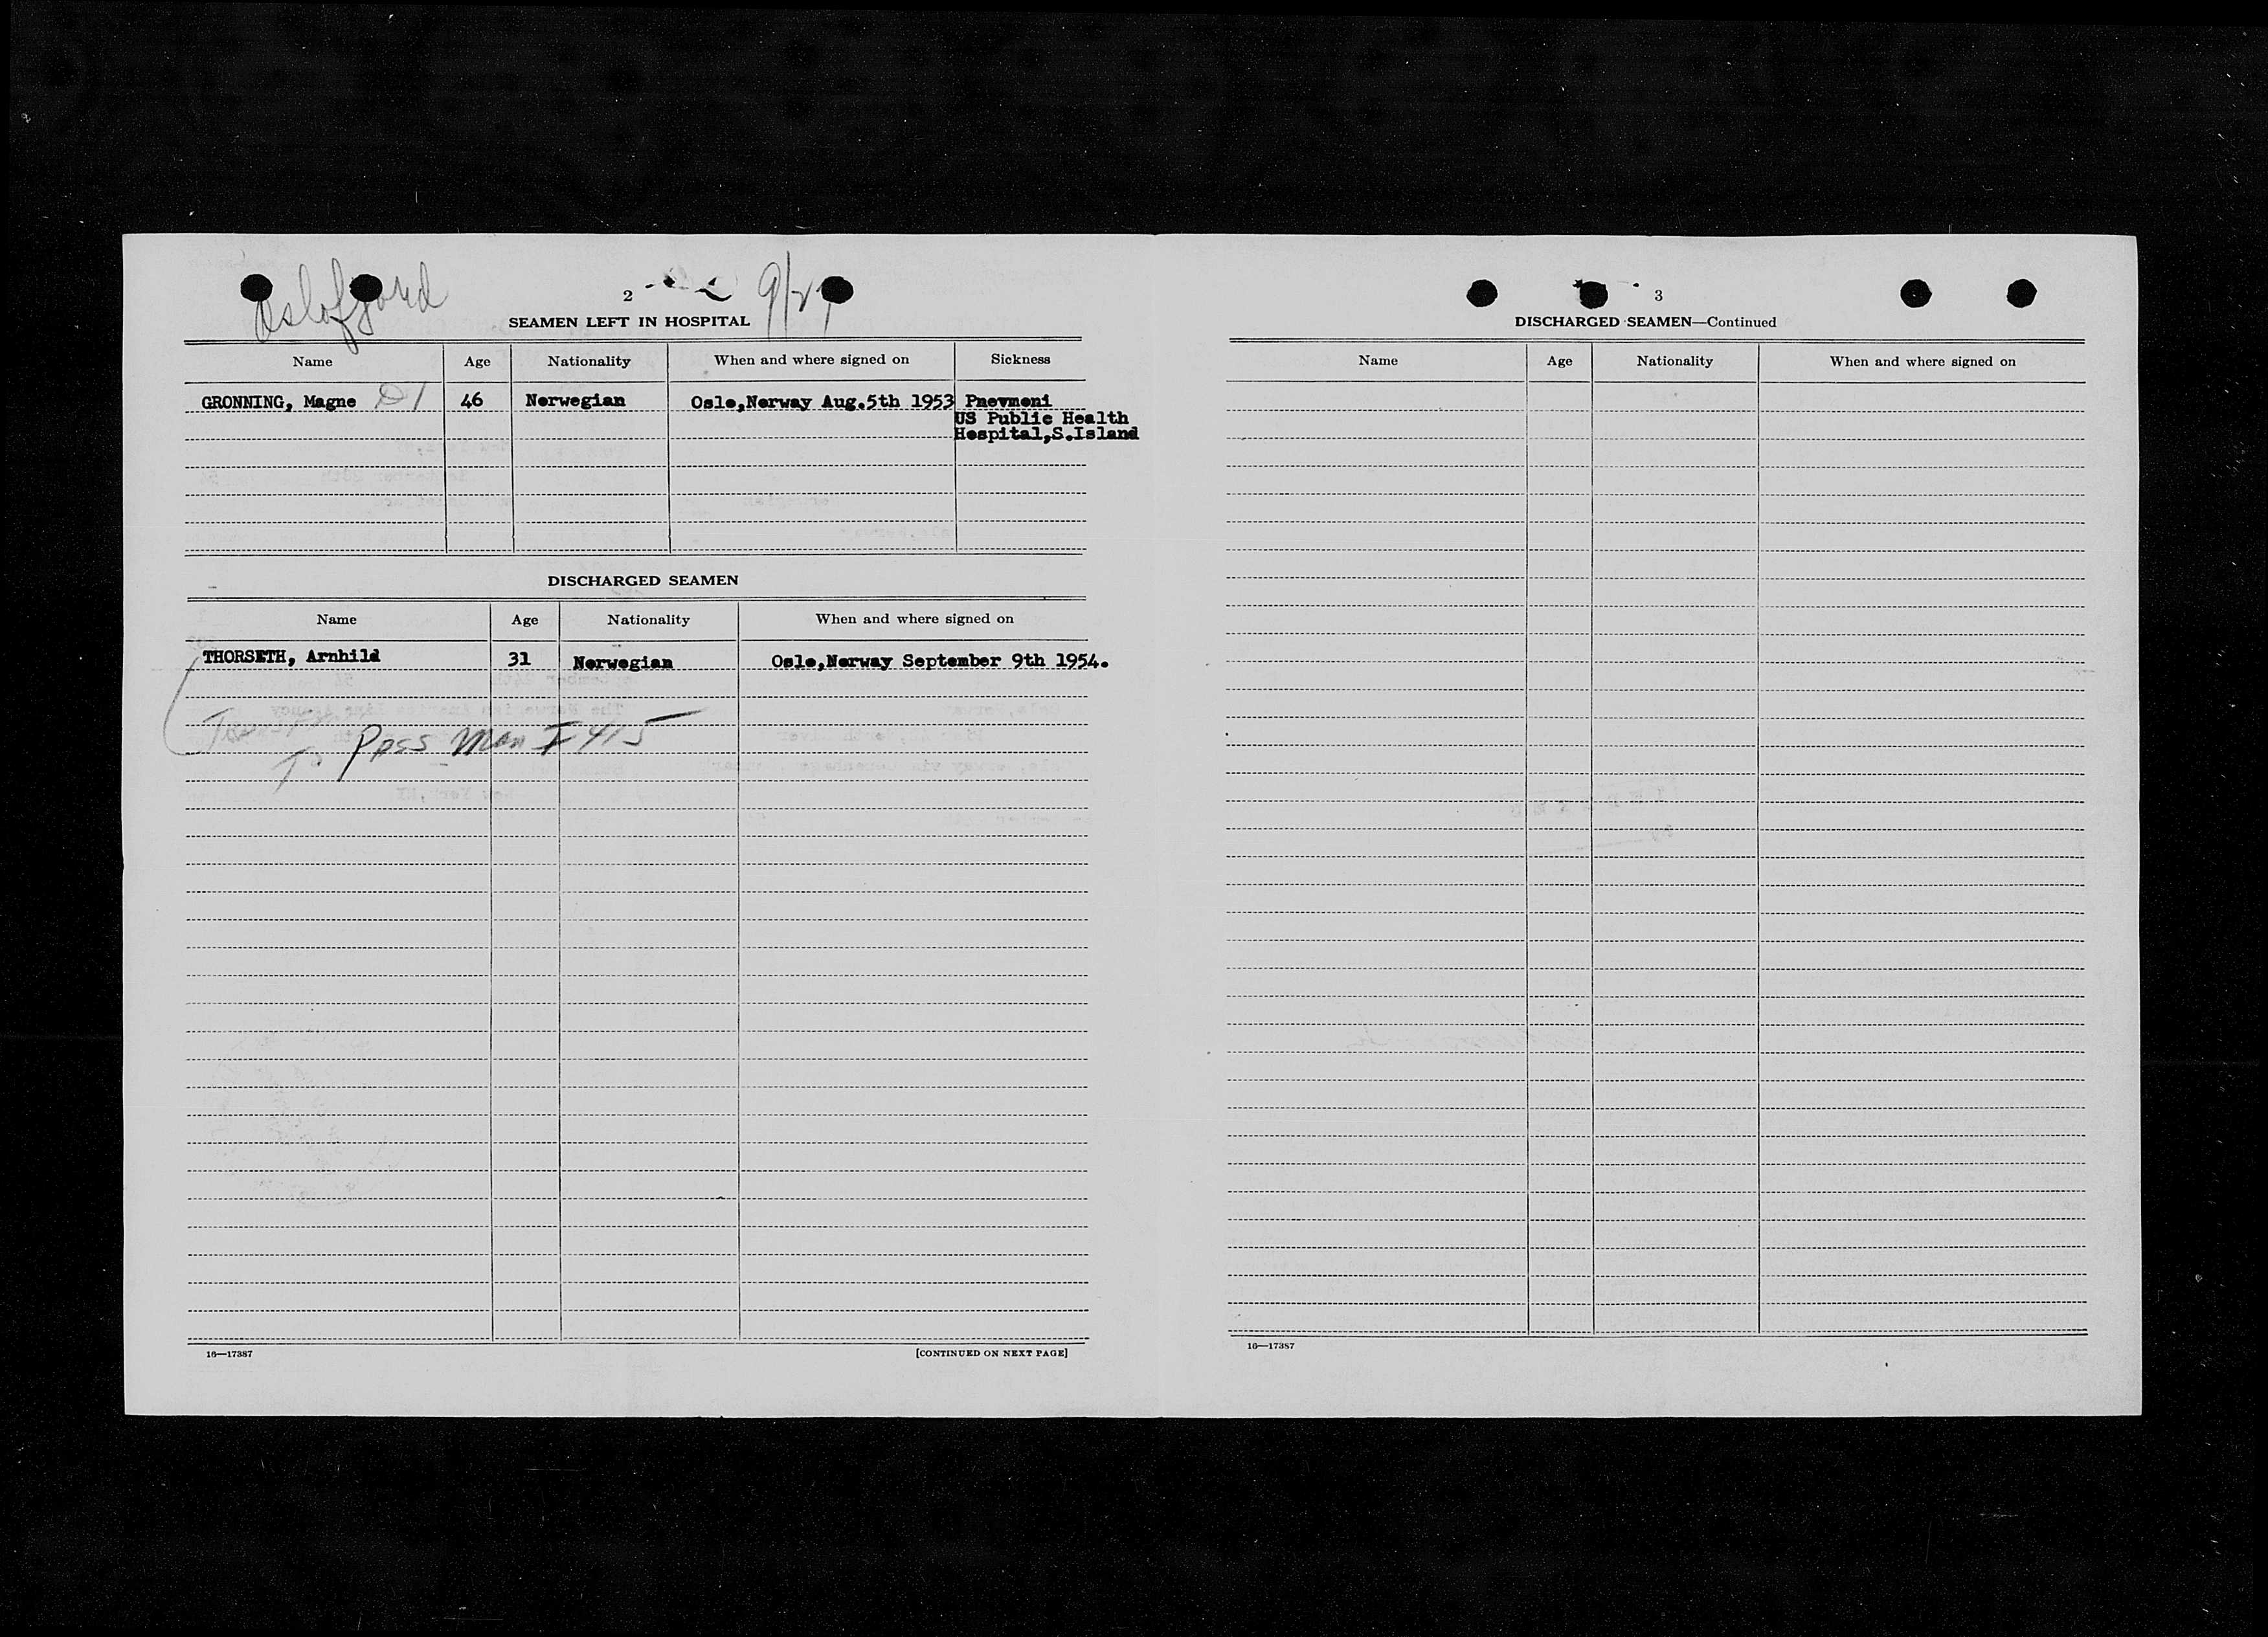 Oslofjord
2
SEAMEN LEFT IN HOSPITAL
Name Age Nationality When and where signed on Sickness
GRONNING, Magne D1 46 Norwegian Oslo,Norway Aug.5th 1953 Pnevmoni
US Public Health
Hospital,S.Island
DISCHARGED SEAMEN
Name Age Nationality When and where signed on
THORSETH, Arnhild 31 Norwegian Oslo,Norway September 9th 1954.
To Pass Man I 415
16—17387 [CONTINUED ON NEXT PAGE]
3
DISCHARGED SEAMEN—Continued
Name Age Nationality When and where signed on
16—17387